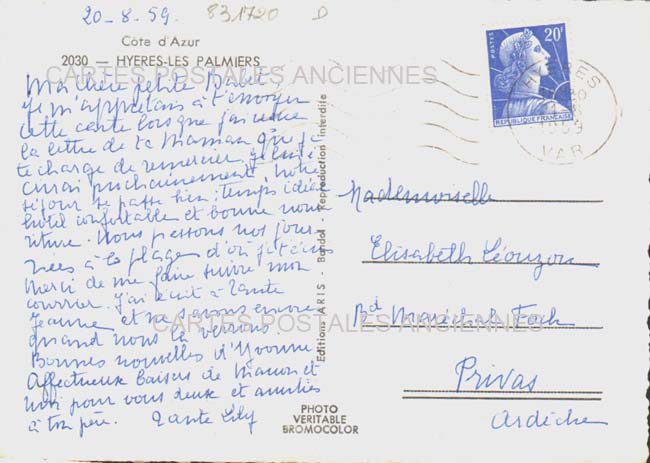 20-8-59. 831720 D
Côte d'Azur
2030 — HYERES-LES PALMIERS
CARTES POSTALES ANCIENNES
Ma chère petite Babet
je m'apprêtais à t'envoyer
cette carte lorsque j'ai reçu
la lettre de ta Maman que je
te charge de remercier, je lui
écrirai prochainement. Notre
séjour se passe bien, temps idéal
hôtel confortable et bonne nour
riture. Nous passons nos jour-
nées à la plage d'où je t'écris
Merci de me faire suivre mon
courrier. J'ai écrit à Tante
Jeanne et ne savons encore
quand nous la verrons
Bonnes nouvelles d'Yvonne
Affectueux baisers de Manon et
moi pour vous deux et amitiés
à ton père. Tante Lily
Editions ARIS - Bandol - Reproduction interdite
PHOTO
VERITABLE
BROMOCOLOR
POSTES 20F
REPUBLIQUE FRANCAISE
HYERES
1959
VAR
Mademoiselle
Elisabeth Léouzon
Bd Maréchal Foch
CARTES POSTALES ANCIENNES
Privas
Ardèche